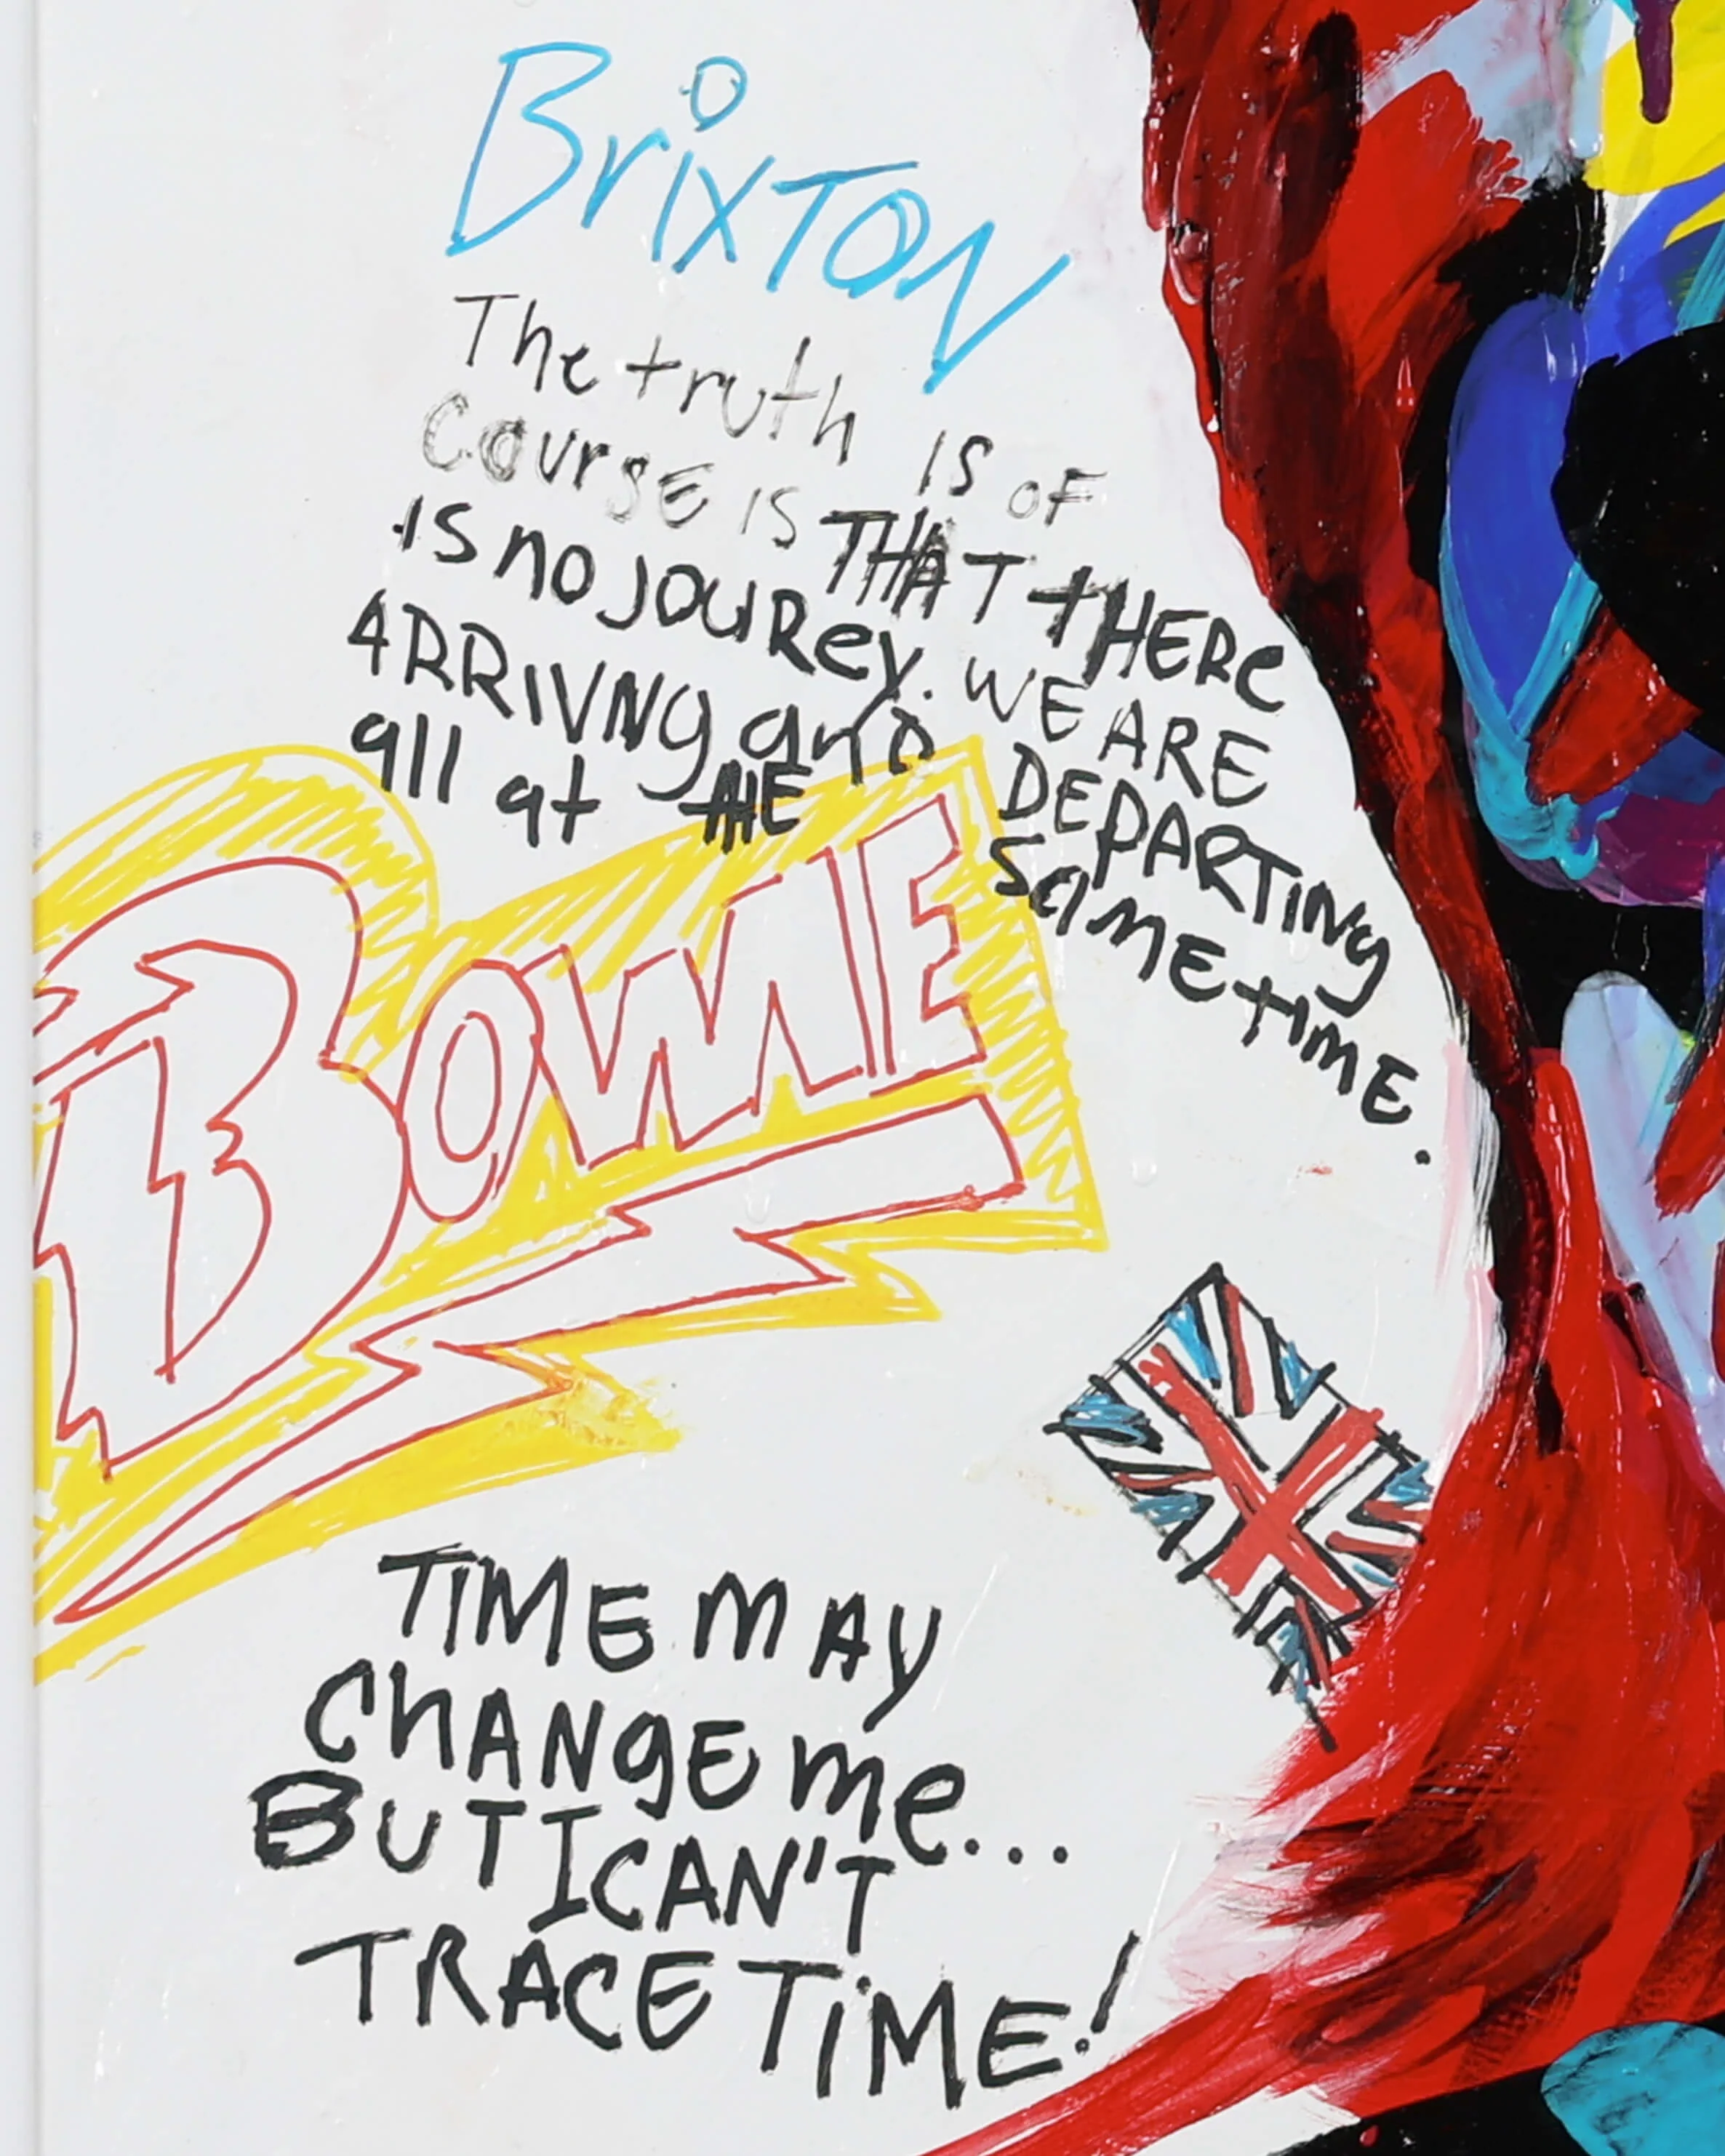 BrixTON
The truth is of
course is THAT tHERe
is no jouRey. WE ARE
ARRIVNg anD DEPARTiNg
all at tHE SaME tiME.
BOWIE
TIME MAY
ChANgE me...
BUT I CAN'T
TRACE TiME!